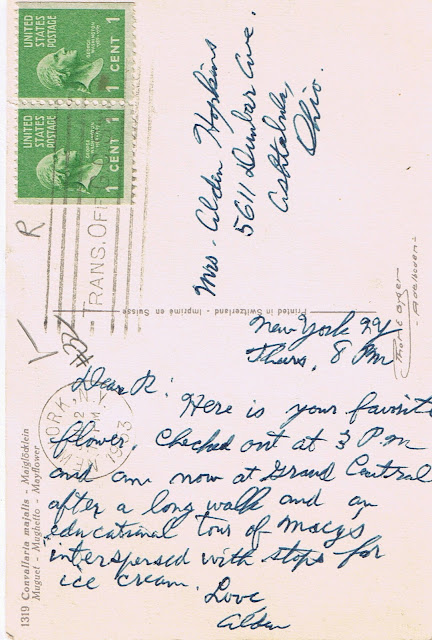 UNITED
STATES
POSTAGE
1 CENT 1
GEORGE
WASHINGTON
UNITED
STATES
POSTAGE
1 CENT 1
GEORGE
WASHINGTON
TRANS. OFF
R
Mrs. Alden Hopkins
5611 Dunbar Ave.
Ashtabula,
Ohio.
Printed in Switzerland - Imprimé en Suisse
Photo
1319 Convallaria majalis - Maiglöcklein
Muguet - Mughetto - Mayflower
YORK, N.
1953
New York NY
Thurs, 8 PM
Dear R:
Here is your favorite
flower. Checked out at 3 P.M
and am now at Grand Central
after a long walk and an
educational tour of Macy's
interspersed with stops for
ice cream.
Love
Alden